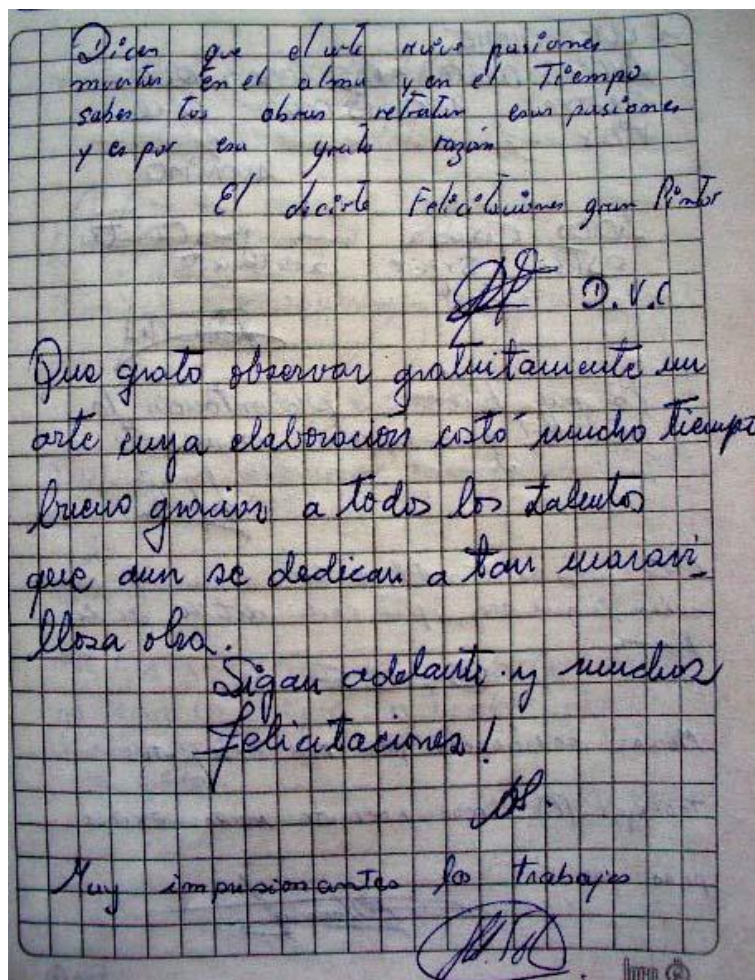 Dicen que el arte revive pasiones
muertas en el alma y en el Tiempo
sabes tus obras retratan esas pasiones
y es por esa grata razón
El decirte Felicitaciones gran Pintor
D.V.C
Que grato observar gratuitamente un
arte cuya elaboración costó mucho tiempo
bueno gracias a todos los talentos
que aun se dedican a tan maravi_
llosa obra.
Sigan adelante y muchas
felicitaciones!
Muy impresionantes los trabajos